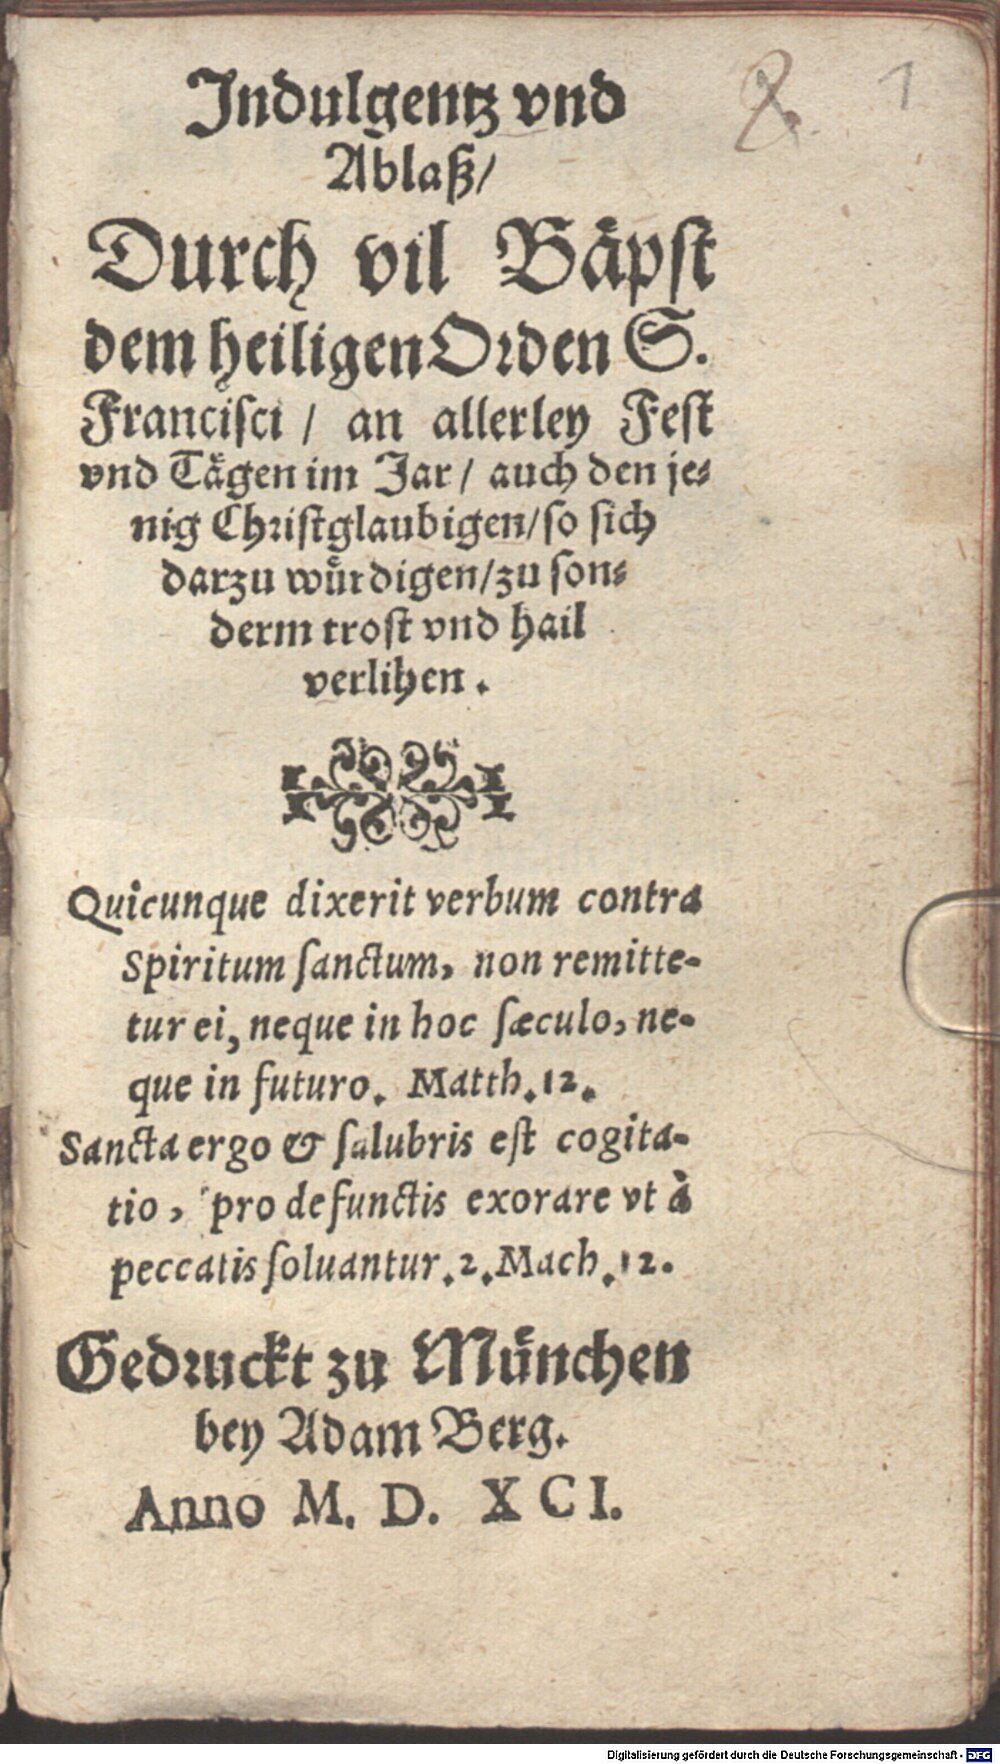 Indulgentz vnd
Ablaß/
Durch vil Bäpst
dem heiligen Orden S.
Francisci / an allerley Fest
vnd Tägen im Jar / auch den je-
nig Christglaubigen / so sich
darzu würdigen / zu son-
derm trost vnd hail
verlihen.
Quicunque dixerit verbum contra
Spiritum ſanctum, non remitte-
tur ei, neque in hoc ſæculo, ne-
que in futuro. Matth. 12.
Sancta ergo & ſalubris eſt cogita-
tio, pro defunctis exorare vt à
peccatis ſoluantur. 2. Mach. 12.
Gedruckt zu München
bey Adam Berg.
Anno M. D. XCI.
1
Digitalisierung gefördert durch die Deutsche Forschungsgemeinschaft - DFG